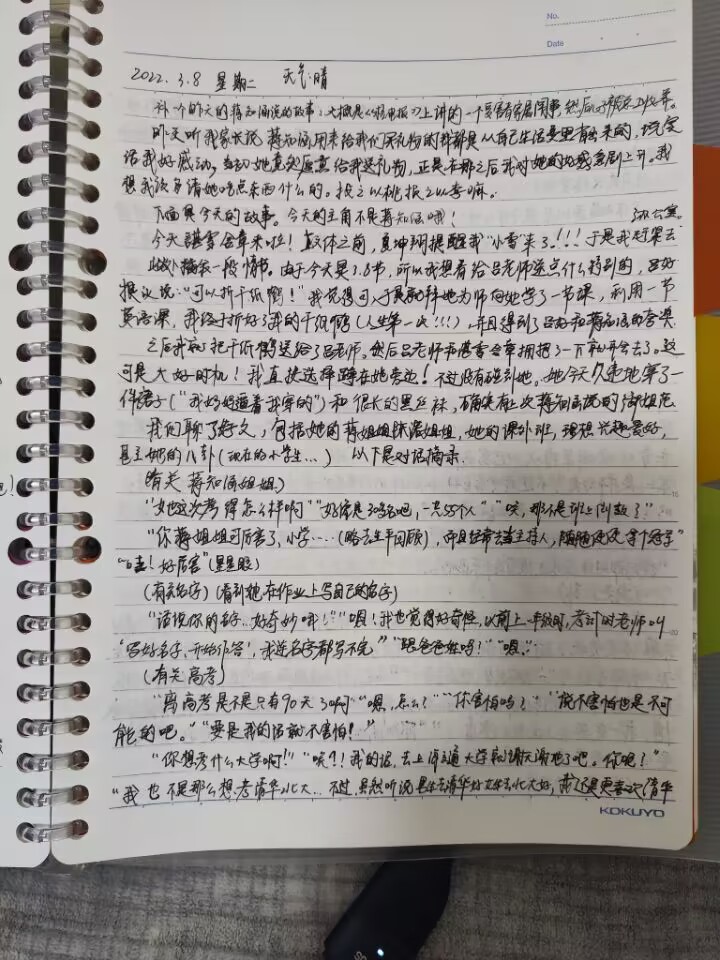 No.
Date
2022.3.8 星期二 天气:晴
补一个昨天的蒋知涵说的故事:大概是《》上讲的一个
昨天听我家长说蒋知涵用来给我们买礼物的钱都是从自己生活费里省出来的,说实
话我好感动。当初她竟然愿意给我送礼物,正是在那之后我对她的好感急剧上升。我
想我该多请她吃点东西什么的。投之以桃报之以李嘛。
下面是今天的故事。今天的主角不是蒋知涵哦!
今天谌雪含章来啦!上体之前,夏坤翔提醒我“小雪”来了!!!于是我赶紧去
此处一段情节。由于今天是3.8节,所以我想着给吕老师送点什么特别的,吕好
提议说:“可以折千纸鹤!”我觉得可,于是就拜她为师向她学了一节课,利用一节
英语课,我终于折好了我的千纸鹤(人生第一次!!!),并且得到了吕好和蒋知涵的夸奖
之后我就把千纸鹤送给了吕老师。然后吕老师和谌雪含章拥抱了一下就开会去了。这
可是大好时机!我直接选择蹲在她旁边!不过没有碰到她。她今天久违地穿了一
件裙子(“我妈妈逼着我穿的”)和很长的黑丝袜,确实有上次蒋知涵说的御姐范
我们聊了好久,包括她的蒋姐姐涂漾姐姐,她的课外班,理想兴趣爱好,
甚至她的八卦(现在的小学生…) 以下是对话摘录.
(有关蒋知涵姐姐)
“她这次考得怎么样啊”“好像是30名吧,一共55个人”“哎,那不是班上倒数了”
“你蒋姐姐可厉害了,小学……(略去生平回顾),而且经常去当主持人,随随便便拿个冠军”
“哇!好厉害”(星星眼)
(有关名字)(看到她在作业上写自己的名字)
“话说你的名字…好奇妙哦!”“嗯!我也觉得好奇怪,以前上一年级时,考试时老师叫
‘写好名字,开始作答’,我连名字都写不完”“跟爸爸姓吗?”“嗯。”
(有关高考)
“离高考是不是只有90天了啊”“嗯,怎么?”“你害怕吗?”“说不害怕也是不可
能的吧。”“要是我的话就不害怕!”
“你想考什么大学啊!”“哎?!我的话,去上海交通大学就谢天谢地了吧。你呢?”
“我也不是那么想考清华北大…不过,虽然听说去清华好去北大好,我还是更喜欢清华
KOKUYO